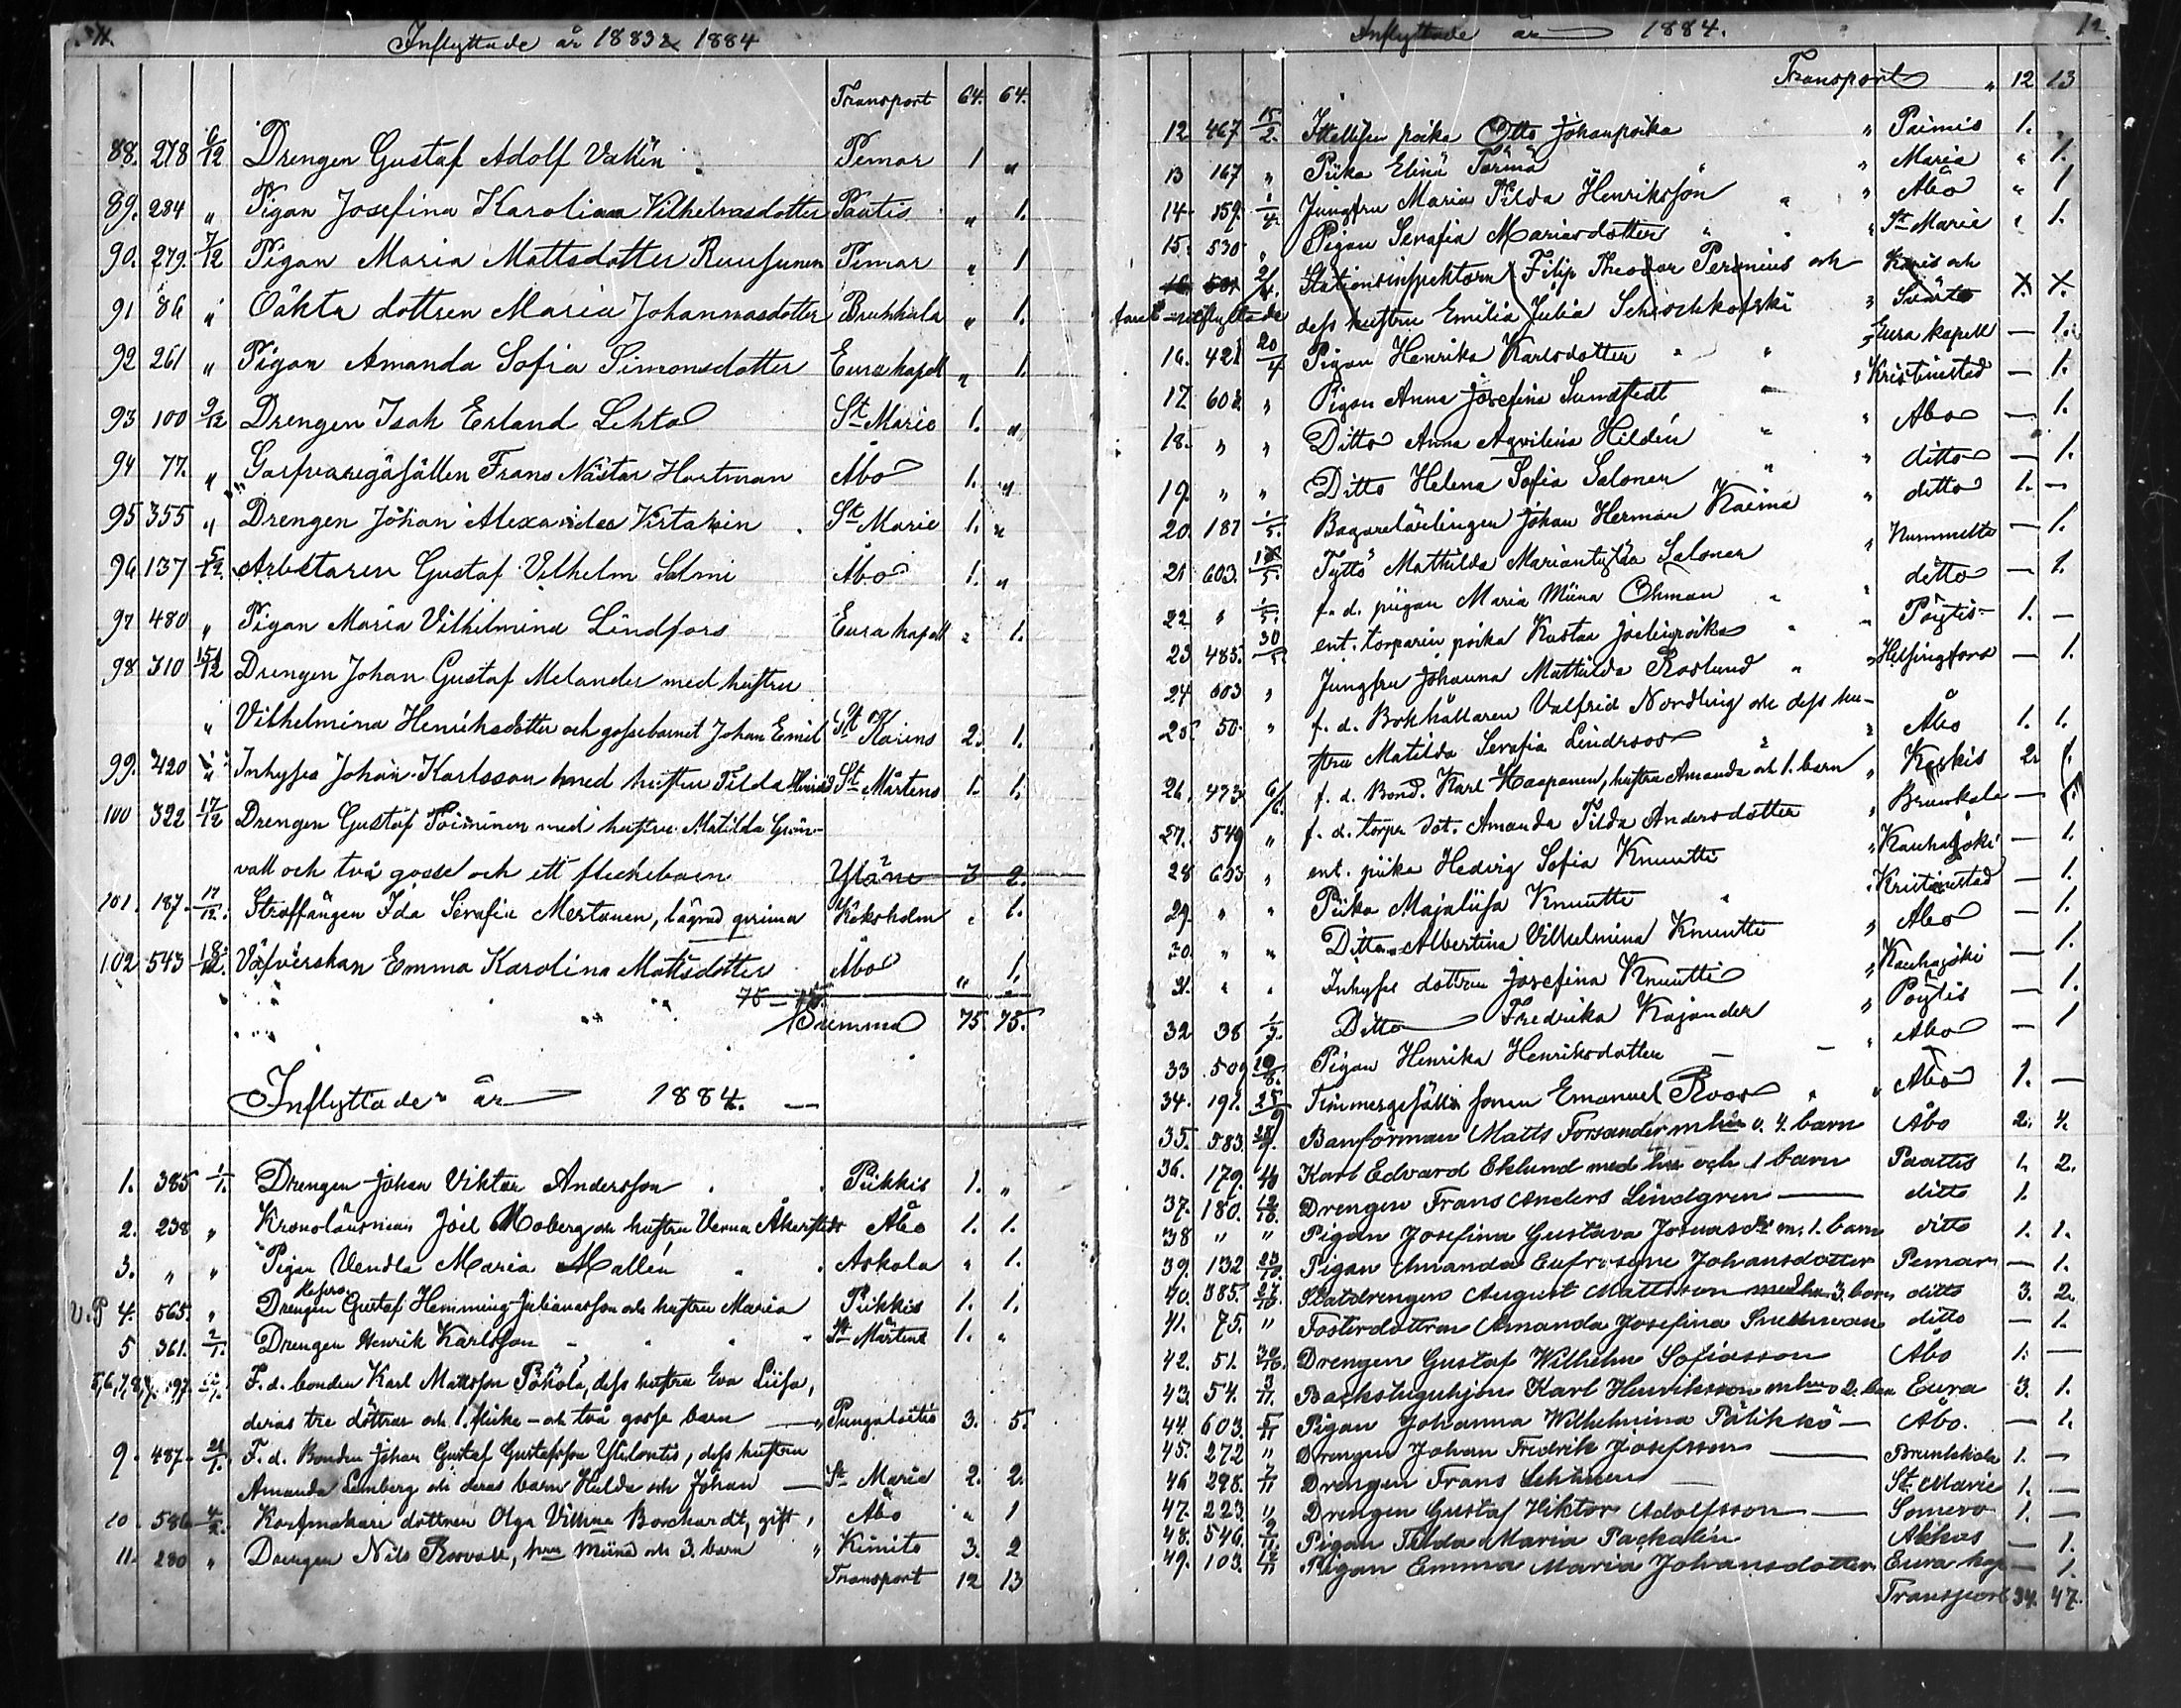 11.
Inflyttade år 1883 & 1884
Transport 64. 64.
88. 278 6/12 Drengen Gustaf Adolf Vallin Pemar 1 "
89. 234 " Pigan Josefina Karolina Vilhelmsdotter Pautis " 1.
90. 279. 7/12 Pigan Maria Mattsdotter Ruusunen Pemar " 1
91 86 " Oäkta dottren Maria Johannasdotter Brunkala " 1.
92 261 " Pigan Amanda Sofia Simonsdotter Eura kapell " 1.
93 100 9/12 Drengen Isak Erland Lehto St Marie 1. "
94 77. " Garfvaregesällen Frans Nästor Hartman Åbo 1. "
95 355 " Drengen Johan Alexander Virtanen St Marie 1. "
96 137 5/12 Arbetaren Gustaf Vilhelm Salmi Åbo 1. "
97 480 " Pigan Maria Vilhelmina Lindfors Eura kapell " 1.
98 310 15/12 Drengen Johan Gustaf Melander med hustru
" Vilhelmina Henriksdotter och gossebarnet Johan Emil St Karins 2. 1.
99. 420 " Inhyses Johan Karlsson med hustru Tilda St Mårtens 1. 1.
100 322 17/12 Drengen Gustaf Toiminen med hustru Matilda Grön-
vall och två gosse och ett flickebarn Yläne 3 2.
101. 187. 17/12. Straffången Ida Serafia Mertanen, Kexholm " 1.
102 543 18/12. Väfverskan Emma Karolina Mattsdotter Åbo " 1.
75 – 75.
Summa 75. 75.
Inflyttade år 1884. —
1. 385 1/1. Drengen Johan Viktor Andersson Piikkis 1. "
2. 238 " Kronolänsman Joel Moberg och hustru Verna Åkerstedt Åbo 1. 1.
3. " " Pigan Vendla Maria Mallén Askola " 1.
V.P 4. 565. " Drengen Gustaf Hemming Julianasson och hustru Maria Piikkis 1. 1.
5 361. 2/1. Drengen Henrik Karlsson St Mårtens 1. "
5,6,7,8, 197. F. d. bonden Karl Mattsson Pöhölä, dess hustru Eva Liisa,
deras tre döttrar och 1. flicke- och två gosse barn — " Pungalaitio 3. 5.
9. 487. 21/1. F. d. Bonden Johan Gustaf Gustafsson, dess hustru
Amanda Lemberg och deras barn Hilda och Johan — St Maria 2. 2.
10 586 4/2. Korfmakare dottren Olga Vilhna Borchardt, gift, Åbo " 1
11. 280 " Drengen Nils Roovall, hru Miina och 3. barn " Kimito 3. 2
Transport 12 13
12.
Inflyttade år 1884.
Transport " 12 13
12 467 15/2. Itsellisen poika Otto Johanpoika " Paimio 1. "
13 167 " Piika Eliina Tärmä " Maria " 1.
14. 159. 1/4. Jungfru Maria Tilda Henriksson " Åbo " 1
15. 530 " Pigan Serafia Mariasdotter " St Marie " 1.
16. 501. 21/4. Stationsinspektorn Filip Theodor Peronius och Karis och
utflyttade dess hustru Emilia Julia Schoschkofski " Svärta X. X.
16. 421 20/4 Pigan Henrika Karlsdotter " Eura kapell — 1.
17. 602 " Pigan Anna Josefina Sundstedt " Kristinestad — 1.
18. " " Ditto Anna Aqvilina Hildén " Åbo — 1.
19. " " Ditto Helena Sofia Salonen " ditto — 1.
20. 187 1/5. Bagarelärlingen Johan Herman Kaima " ditto 1. —
21 603. 1/5. Tyttö Mathilda Mariantytär Salonen " Nummelta — 1.
22 " 1/5. f. d. pigan Maria Miina Öhman " ditto — 1.
23 485. 30/5. ent. torparin poika Kustaa Joelinpoika " Pöytis 1. —
24 603 " Jungfru Johanna Mathilda Roslund " Helsingfors — 1.
25 50. " f. d. Bokhållaren Valfrid Nordling och dess hu-
stru Matilda Serafia Lindroos " Åbo 1. 1.
26. 473 6/6. f. d. Bond. Karl Haapanen, hustru Amanda och 1. barn " Karkis 2. 1.
27. 549 " f. d. torpr dot. Amanda Tilda Andersdotter " Brunkala — 1.
28 603 " ent. piika Hedvig Sofia Knuutti " Kauhajoki — 1.
29. " " Piika Majaliisa Knuutti " Kristinestad — 1.
30. " " Ditto Albertina Vilhelmina Knuutti " Åbo — 1.
31. " " Inhyses dottren Josefina Knuutti " Kauhajoki — 1.
32 38 1/7. Ditto Fredrika Kajander " Pöytis — 1.
33 509 10/8. Pigan Henrika Henriksdotter — " Åbo — 1
34. 191. 25/9 Timmergesälls sonen Emanuel Roos " Åbo 1. —
35. 583. 28/9. Banförman Matts Forsander m. hu o. 4. barn Åbo 2. 4.
36. 179. Karl Edvard Eklund med hu och 1 barn Paattis 1. 2.
37. 180. 12/10. Drengen Frans Anders Lindgren — ditto 1.
38 " " Pigan Josefina Gustava Josuasdtr m. 1. barn ditto 1. 1.
39. 132 23/10. Pigan Amanda Eufrosyne Johansdotter Pemar — 1.
40. 385. 27/10. Statdrengen August Mattsson med hu 3. barn ditto 3. 2.
41. 75. " Fosterdottren Amanda Josefina Snellman ditto — 1.
42. 51. 30/10. Drengen Gustaf Wilhelm Sofiasson Åbo 1. —
43. 54. 3/11. Backstuguhjon Karl Henriksson m hu o 2. barn Eura 3. 1.
44. 603. 5/11 Pigan Johanna Wilhelmina Pälikkö — Åbo. — 1.
45. 272 " Drengen Johan Fredrik Josefsson — Brunkala 1. —
46 298. 7/11 Drengen Frans Lehtinen — St. Marie 1. —
47. 223. " Drengen Gustaf Viktor Adolfsson — Somero 1. —
48. 546. 9/11. Pigan Tilda Maria Packalén Akkas — 1.
49. 103. 12/11 Pigan Emma Maria Johansdotter Eura kap — 1.
Transport 34. 47.